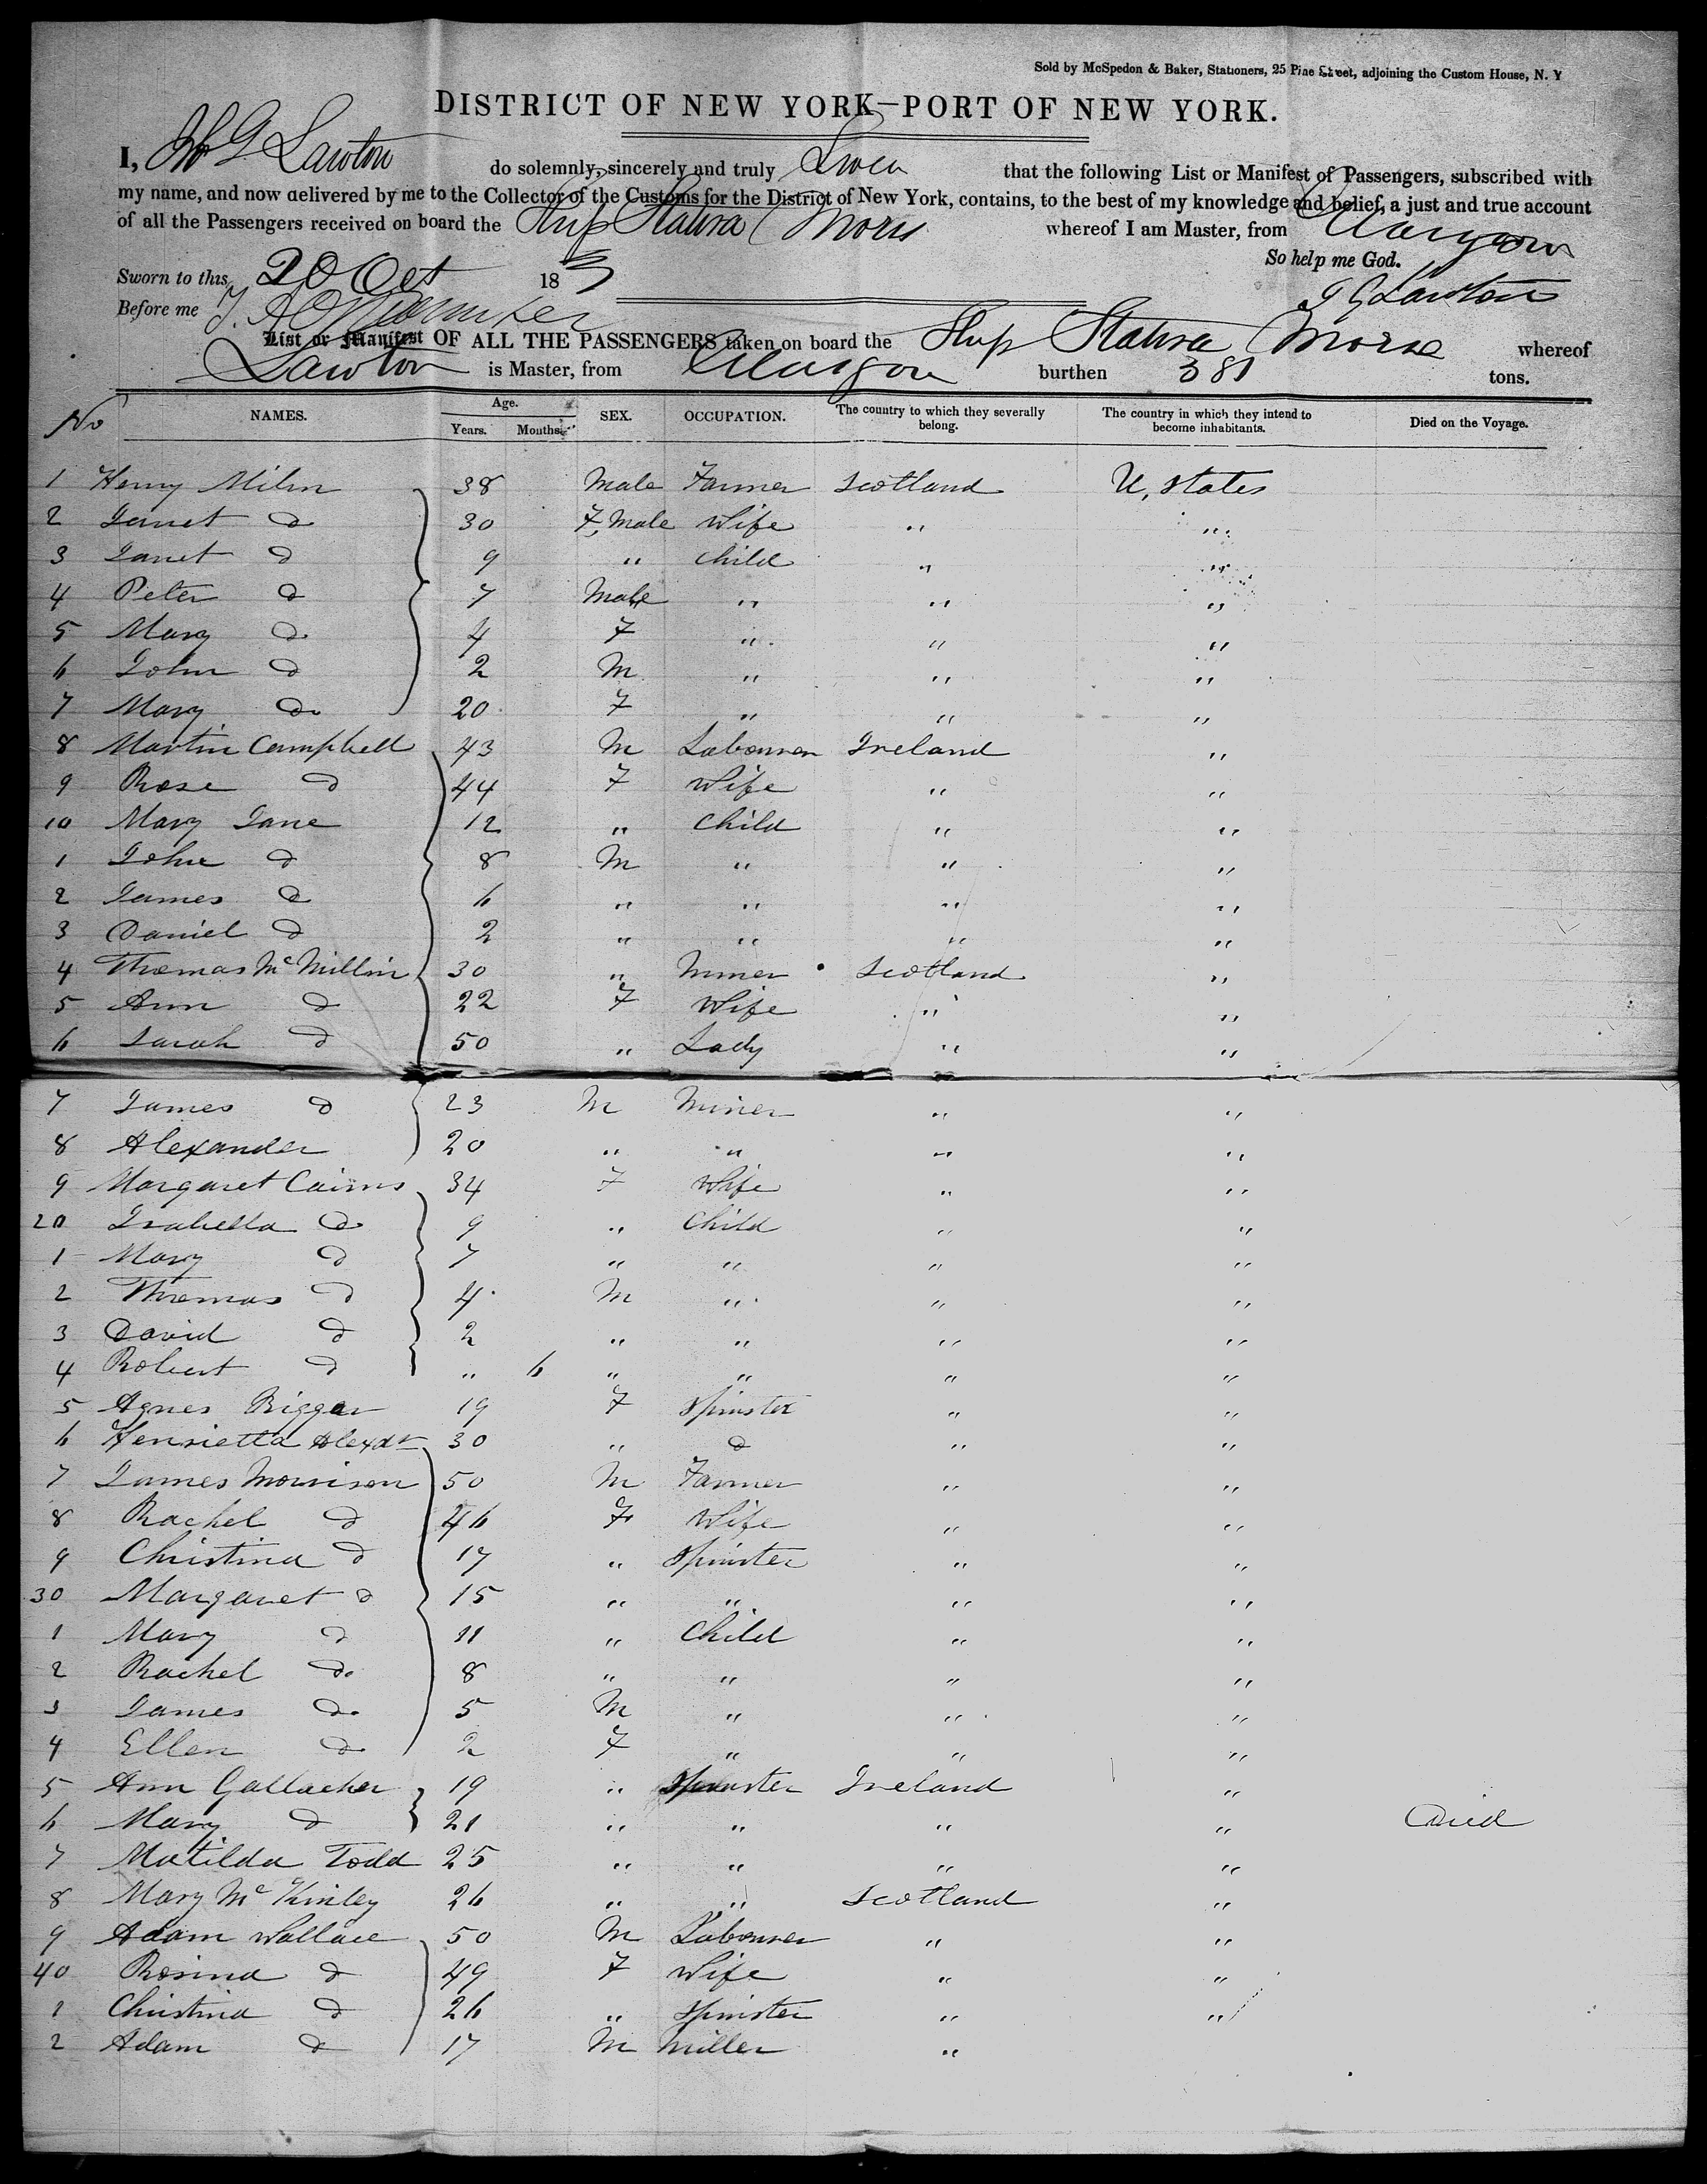 Sold by McSpedon & Baker, Stationers, 25 Pine Street, adjoining the Custom House, N. Y
DISTRICT OF NEW YORK—PORT OF NEW YORK.
I, Lawton do solemnly, sincerely and truly Swear that the following List or Manifest of Passengers, subscribed with
my name, and now delivered by me to the Collector of the Customs for the District of New York, contains, to the best of my knowledge and belief, a just and true account
of all the Passengers received on board the Ship Statira Morse whereof I am Master, from Glasgow
So help me God.
Sworn to this 20 Oct 185
Before me J G Lawton
List or Manifest OF ALL THE PASSENGERS taken on board the Ship Statira Morse whereof
Lawton is Master, from Glasgow burthen 381 tons.
No NAMES. Age. Years. Months. SEX. OCCUPATION. The country to which they severally belong. The country in which they intend to become inhabitants. Died on the Voyage.
1 Henry Miln 38 Male Farmer Scotland U, States
2 Janet do 30 F, Male Wife " "
3 Janet do 9 " Child " "
4 Peter do 7 Male " " "
5 Mary do 4 F " " "
6 John do 2 M " " "
7 Mary do 20 F " " "
8 Martin Campbell 43 M Labourer Ireland "
9 Rose do 44 F Wife " "
10 Mary Jane 12 " Child " "
1 John do 8 M " " "
2 James do 6 " " " "
3 Daniel do 2 " " " "
4 Thomas McMillin 30 " Miner Scotland "
5 Ann do 22 F Wife " "
6 Sarah do 50 " Lady " "
7 James do 23 M Miner " "
8 Alexander 20 " " " "
9 Margaret Cairns 34 F Wife " "
20 Isabella do 9 " Child " "
1 Mary do 7 " " " "
2 Thomas do 4 M " " "
3 David do 2 " " " "
4 Robert do " 6 " " " "
5 Agnes Biggar 19 F Spinster " "
6 Henrietta Alexdr 30 " do " "
7 James Morrison 50 M Farmer " "
8 Rachel do 46 F Wife " "
9 Christina do 17 " Spinster " "
30 Margaret do 15 " " " "
1 Mary do 11 " Child " "
2 Rachel do 8 " " " "
3 James do 5 M " " "
4 Ellen do 2 F " " "
5 Ann Gallacher 19 " Spinster Ireland "
6 Mary do 21 " " " " Died
7 Matilda Todd 25 " " " "
8 Mary McKinley 26 " " Scotland "
9 Adam Wallace 50 M Labourer " "
40 Rosina do 49 F Wife " "
1 Christina do 26 " Spinster " "
2 Adam do 17 M Miller "